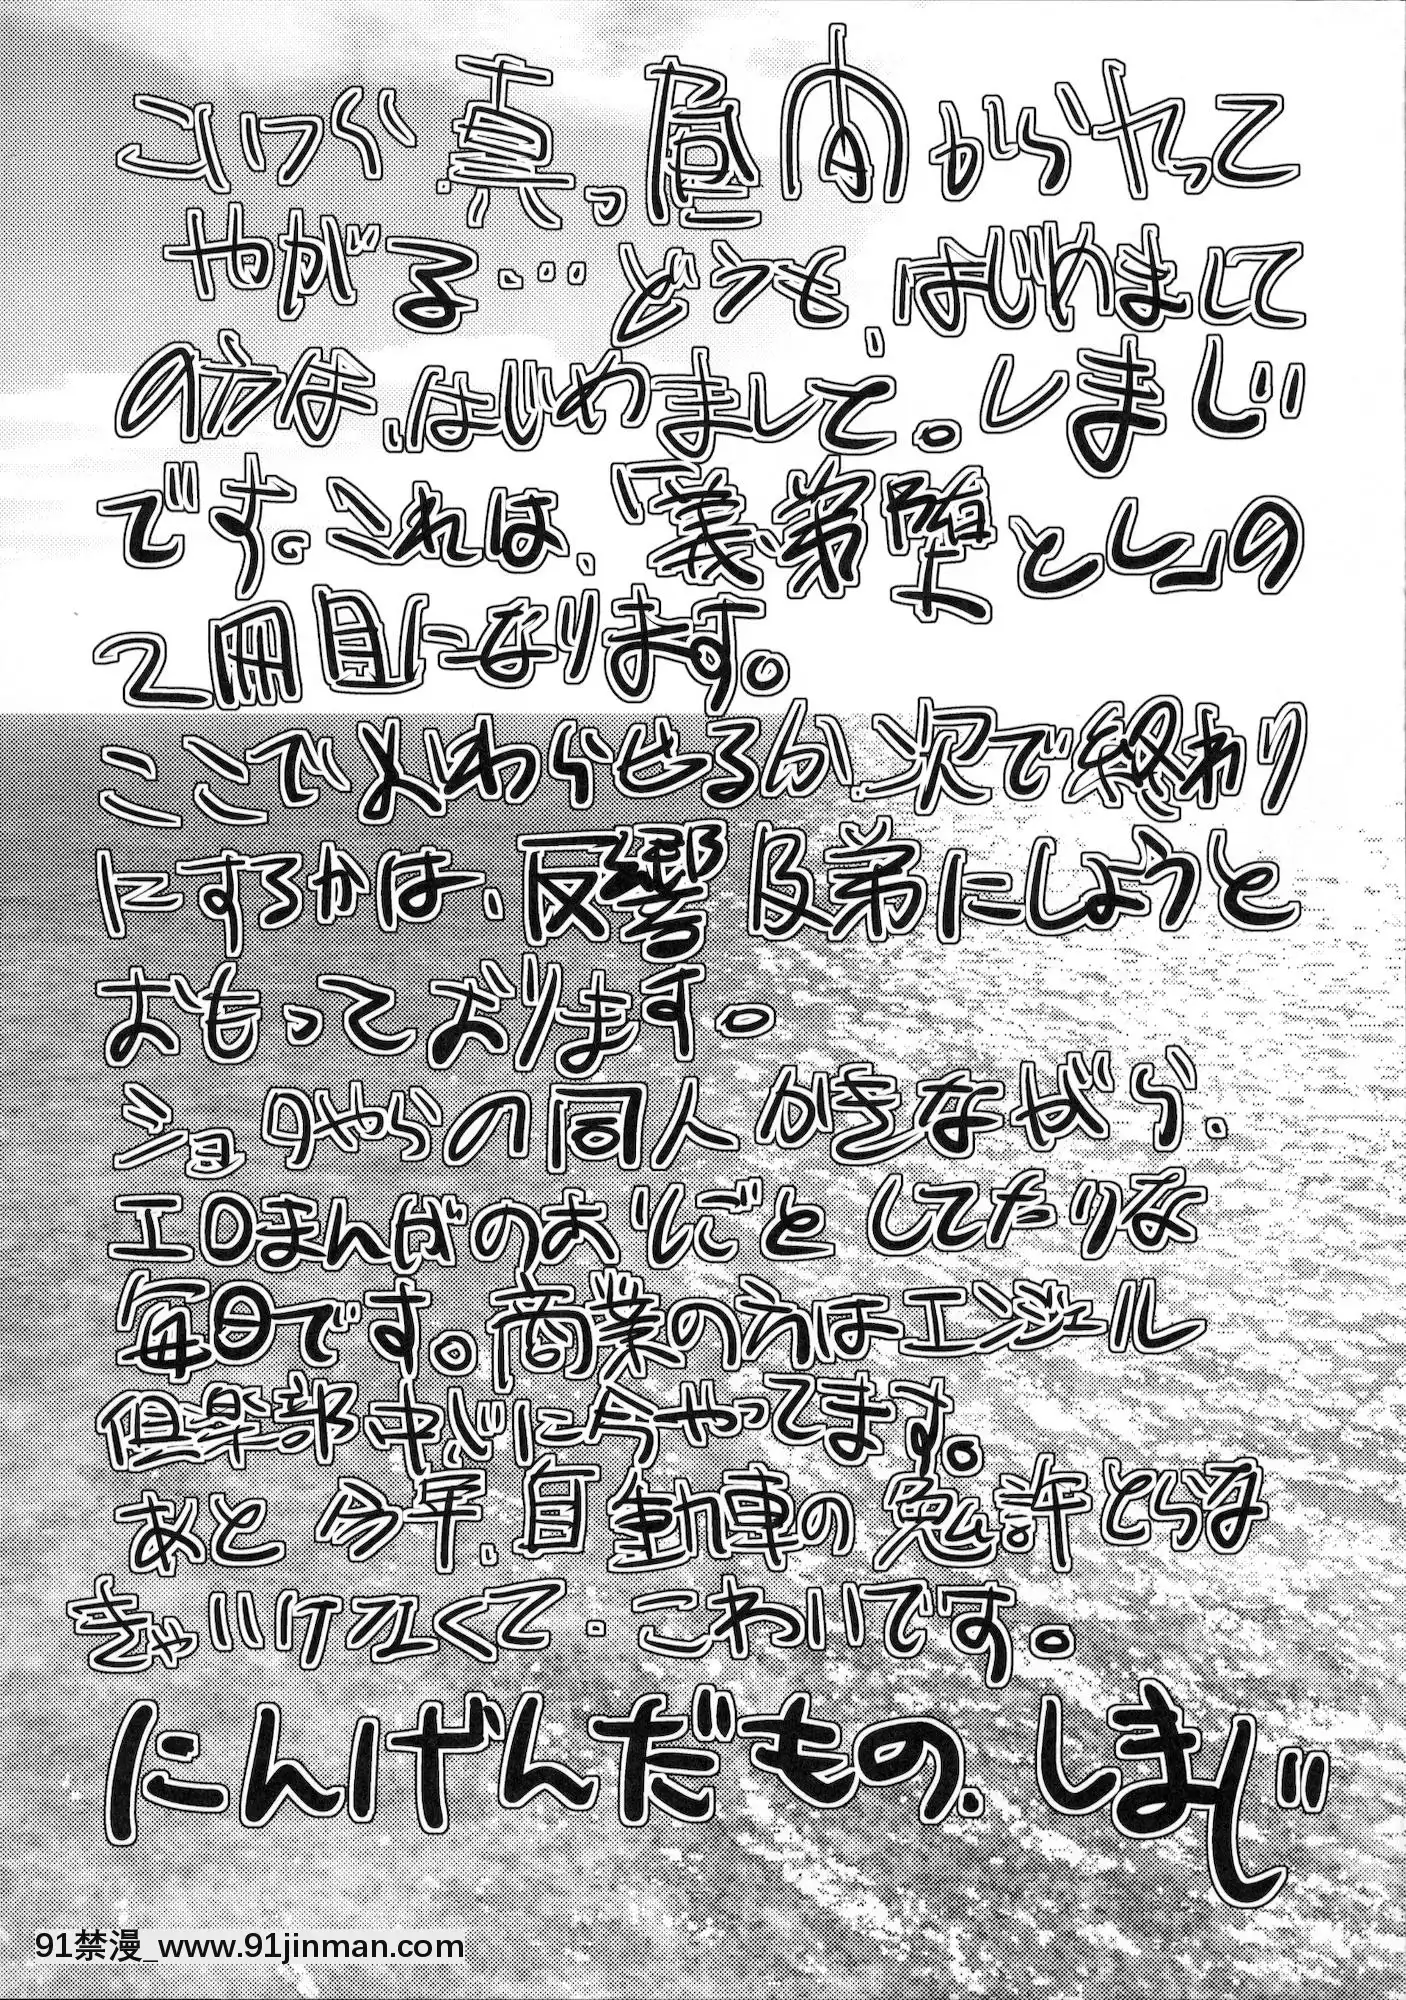 こいつら真っ昼間からヤって
やがる…どうも、はじめまして
の方は、はじめまして。しまじ
です。これは、「義弟堕とし」の
2冊目になります。
ここでいよいわからせるか、次で終わり
にするかは、反響及弟にしようと
おもっております。
ショタやらの同人かきながら、
エロまんがのおしごとしてたりな
毎日です。商業の方はエンジェル
倶楽部中心に今やってます。
あと今年、自動車の免許とらな
きゃいけなくて、こわいです。
にんげんだもの、しまじ
91禁漫_www.91jinman.com